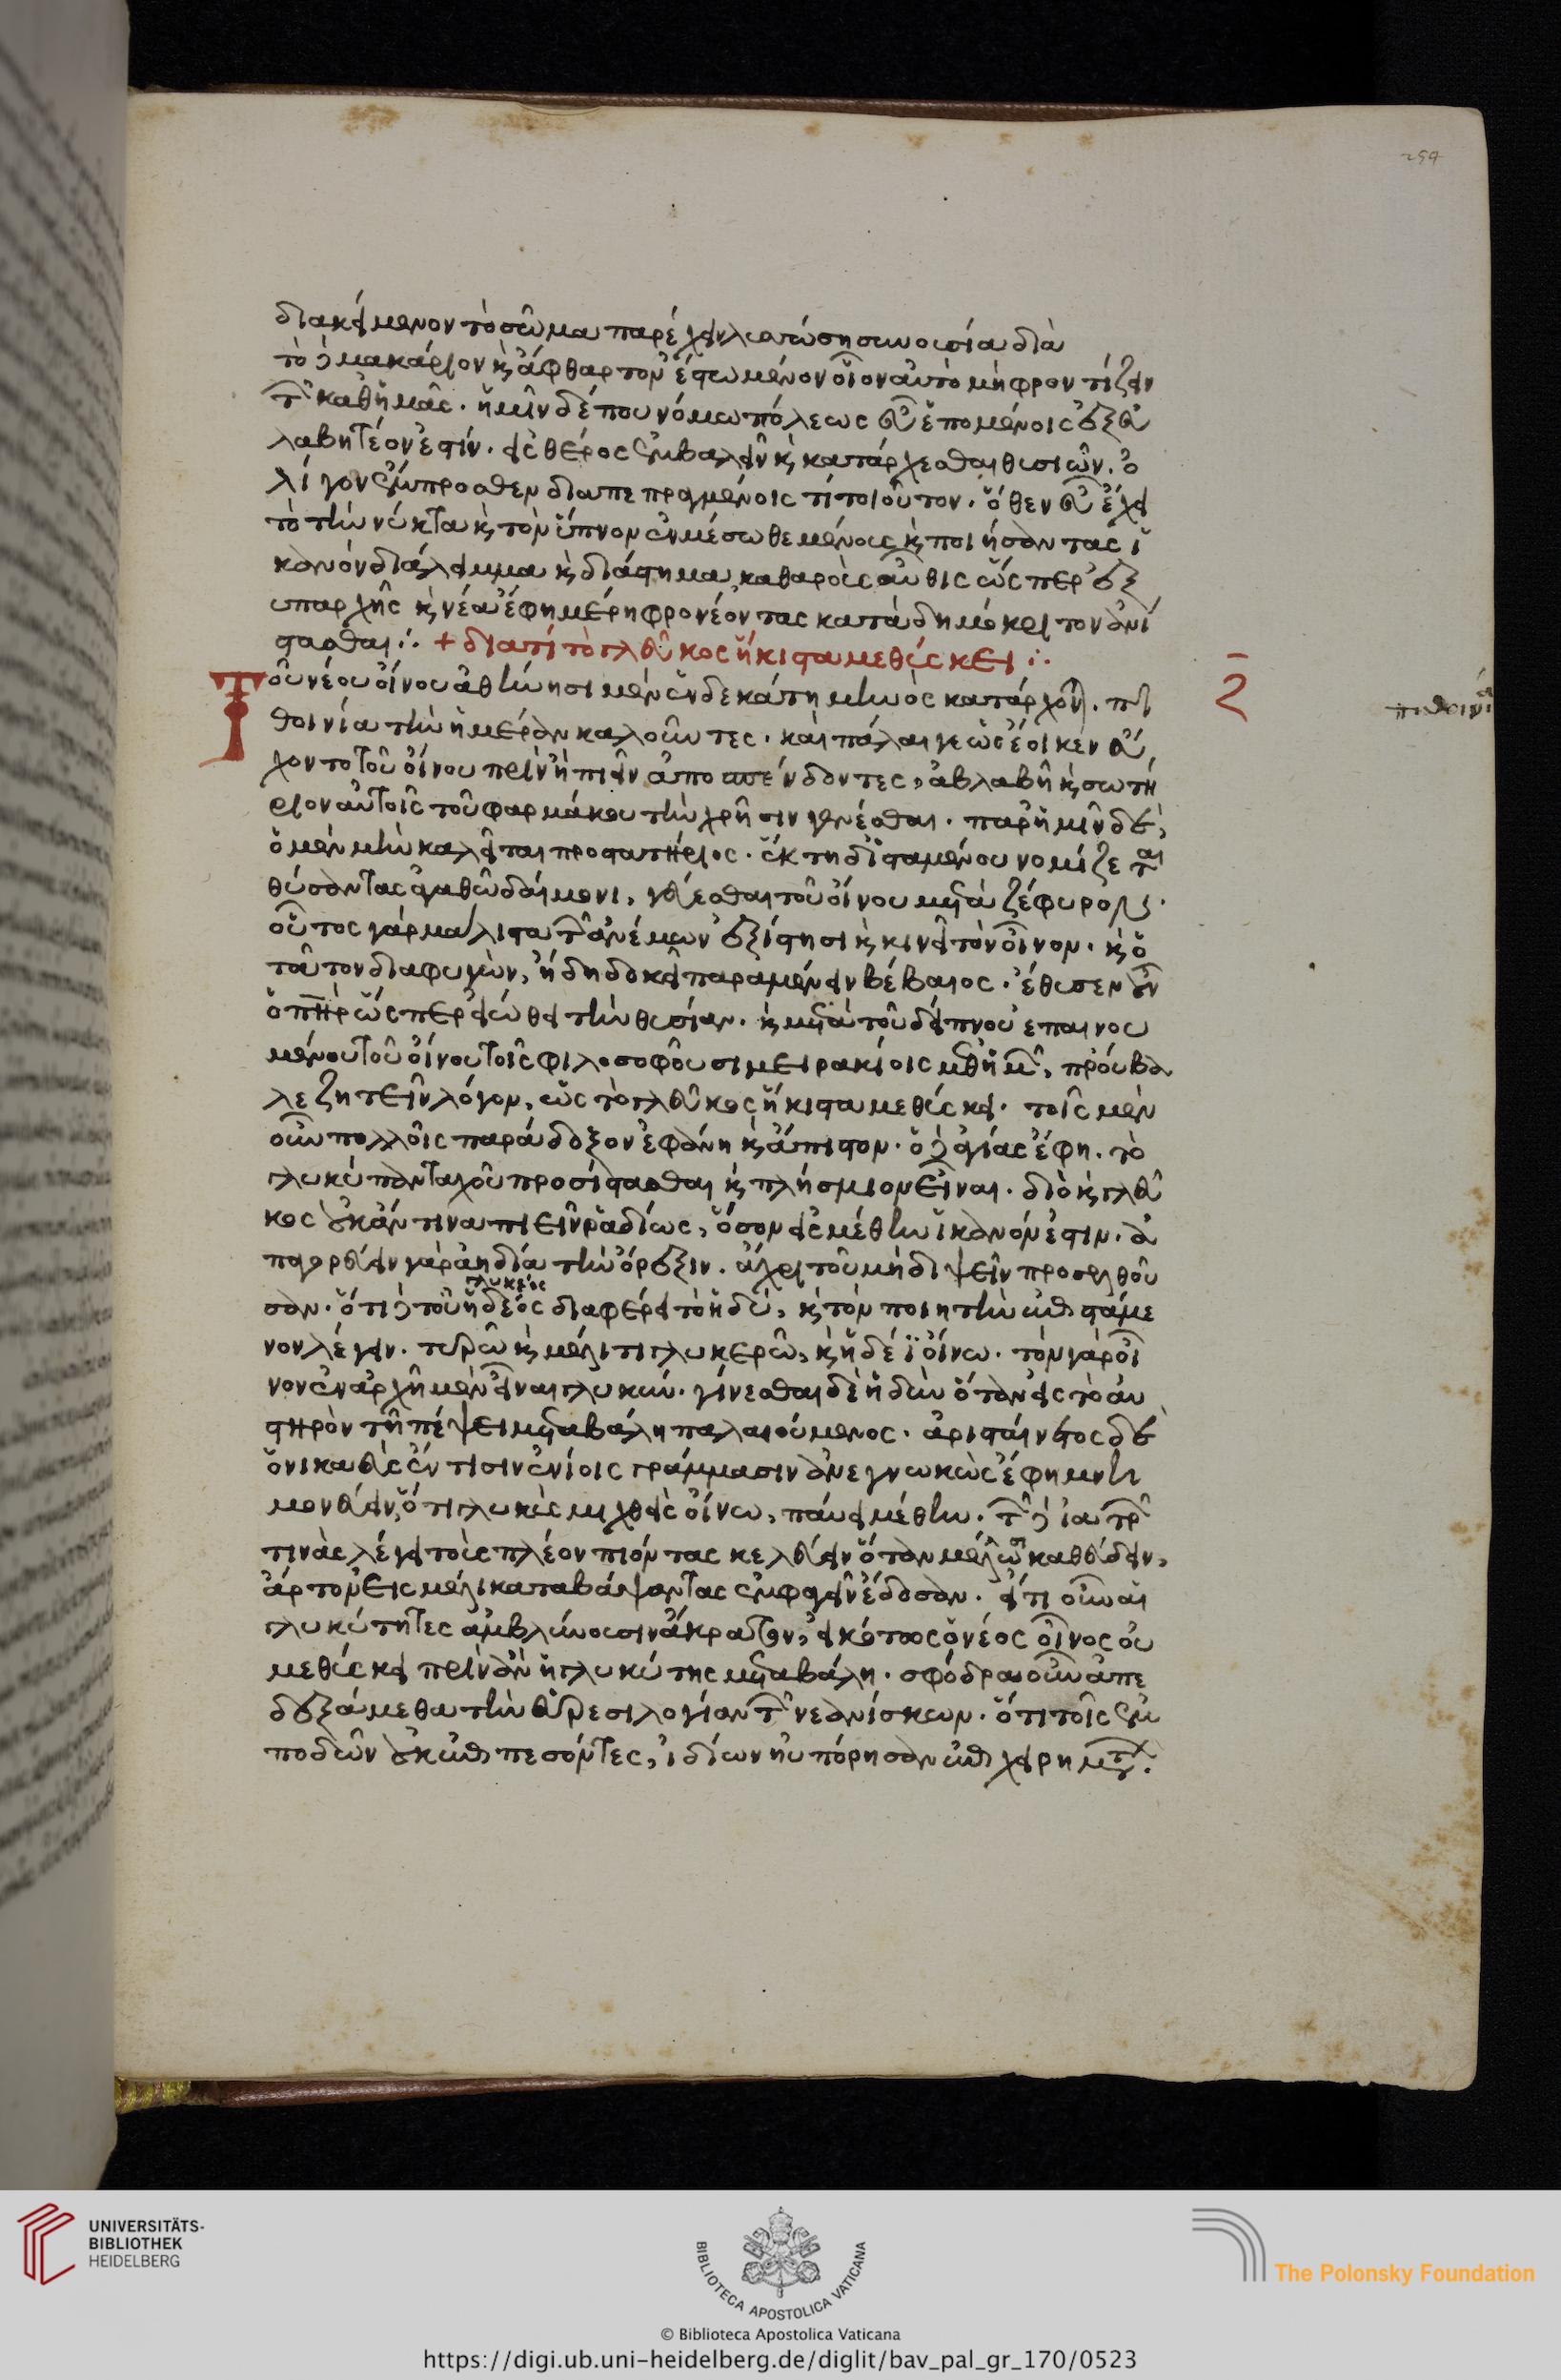 254
διακείμενον τὸ σῶμα παρέχειν λεαπώση συνουσία διὰ
τὸ μακάριον καὶ ἄφθαρτον ἑστώμενον οἷον αὐτὸ μὴ φροντίζειν
τῶν καθ' ἡμᾶς. ἡμῖν δέ που νόμω πόλεως εὖ ἑπομένοις ἐξευ
λαβητέον ἐστίν. εἰς θέρος ἐμβαλεῖν καὶ κατάρχεσθαι θυσιῶν. ὀ
λίγον ἔμπροσθεν διαπεπραγμένοις τί τοιοῦτον. ὅθεν εὖ ἔχει
τὸ τὴν νύκτα καὶ τὸν ὕπνον ἐν μέσω θεμένους καὶ ποιήσαντας ἱ
κανὸν διάλειμμα καὶ διάστημα καθαροὺς αὖθις ὥσπερ ἐξ
υπαρχῆς καὶ νέα ἐφ' ἡμέρη φρονέοντας κατὰ δημόκριτον ἀνί
στασθαι: + διατί τὸ γλεῦκος ἥκιστα μεθύσκει:
Τοῦ νέου οἴνου ἀθήνησι μὲν ἑνδεκάτη μηνὸς κατάρχονται. πι
θοινία τὴν ἡμέραν καλοῦντες. καὶ πάλαι γε ὡς ἔοικεν εὔ
χοντο τοῦ οἴνου πρὶν ἢ πιεῖν ἀποσπένδοντες, ἀβλαβῆ καὶ σωτή
ριον αὐτοῖς τοῦ φαρμάκου τὴν χρῆσιν γενέσθαι. παρ' ἡμῖν δὲ,
ὁ μὲν μὴν καλεῖται προστατήριος. ἕκτη δ' ἱσταμένου νομίζεται
θύσαντας ἀγαθῶ δαίμονι, γεύεσθαι τοῦ οἴνου μετὰ ζέφυρον.
οὗτος γὰρ μάλιστα τῶν ἀνέμων ἐξίστησι καὶ κινεῖ τὸν οἶνον. καὶ ὁ
τοῦτον διαφυγὼν, ἤδη δοκεῖ παραμένειν βέβαιος. ἔθυσεν οὖν
ὁ πατὴρ ὥσπερ εἰώθει τὴν θυσίαν. καὶ μετὰ τοῦ δείπνου ἐπαινου
μένου τοῦ οἴνου τοῖς φιλοσοφοῦσι μειρακίοις μεθ' ἡμῶν, προύβα
λε ζητεῖν λόγον, ὡς τὸ γλεῦκος ἥκιστα μεθύσκει. τοῖς μὲν
οὖν πολλοῖς παράδοξον ἐφάνη καὶ ἄπιστον. ὁ δὲ ἁγίας ἔφη. τὸ
γλυκὺ πανταχοῦ προσίστασθαι καὶ πλήσμιον εἶναι. διὸ καὶ γλεῦ
κος οὐκ ἄν τινα πιεῖν ῥαδίως, ὅσον εἰς μέθην ἱκανόν ἐστιν. ἀ
παγορεύειν γὰρ ἀηδία τὴν ὄρεξιν. ἄχρι τοῦ μὴ διψεῖν προσελθοῦ
γλυκέος
σαν. ὅτι δὲ τοῦ ἡδέος διαφέρει τὸ ἡδύ, καὶ τὸν ποιητὴν ἐπιστάμε
νον λέγειν. τυρῶ καὶ μέλιτι γλυκερῶ, καὶ ἡδέϊ οἴνω. τὸν γὰρ οἶ
νον ἐν ἀρχῆ μὲν εἶναι γλυκὺν. γίνεσθαι δὲ ἡδὺν ὅταν εἰς τὸ αὐ
στηρὸν τῆ πέψει μεταβάλη παλαιούμενος. ἀρισταίνετος δὲ
ὁ νικαεὺς ἐν τισὶν ἐνίοις γράμμασιν ἀνεγνωκὼς ἔφη μνη
μονεύειν, ὅτι γλυκὺς μιχθεὶς οἴνω, παύει μέθην. τῶν δὲ ἰατρῶν
τινὰς λέγει τοὺς πλέον πιόντας κελεύειν ὅταν μέλλωσι καθεύδειν,
ἄρτον εἰς μέλι καταβάψαντας ἐμφαγεῖν ἔδοσαν. εἴ τι οὖν αἱ
γλυκύτητες ἀμβλύνουσιν ἄκρατον, εἰκότως ὁ νέος οἶνος οὐ
μεθύσκει πρὶν ἂν ἡ γλυκύτης μεταβάλη. σφόδρα οὖν ἀπε
δεξάμεθα τὴν εὑρεσιλογίαν τῶν νεανίσκων. ὅτι τοῖς ἐμ
ποδῶν οὐκ ἐπιπεσόντες, ἰδίων ηὐπόρησαν ἐπιχειρημάτων.
ζ
πιθοινία
UNIVERSITÄTS-
BIBLIOTHEK
HEIDELBERG
BIBLIOTECA APOSTOLICA VATICANA
The Polonsky Foundation
© Biblioteca Apostolica Vaticana
https://digi.ub.uni-heidelberg.de/diglit/bav_pal_gr_170/0523